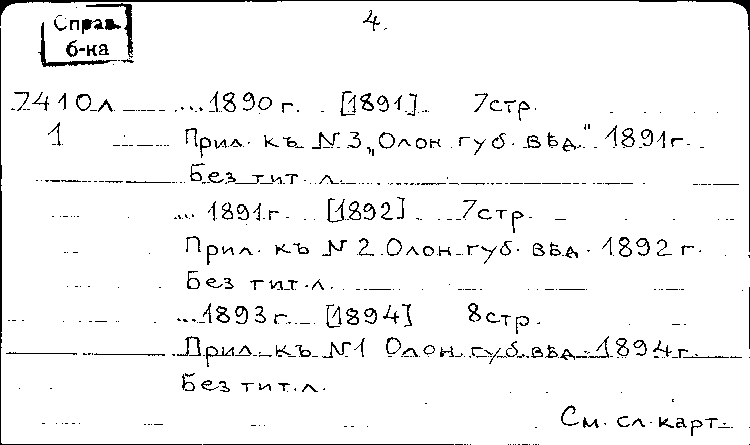 Справ.
б-ка
4.
7410л ...1890 г. [1891] 7стр.
1 Прил. къ N 3 „Олон. губ. вѣд." 1891г.
Без тит. л.
... 1891г. [1892] 7стр.
Прил. къ N 2 Олон. губ. вѣд. 1892 г.
Без тит. л.
...1893 г. [1894] 8стр.
Прил. къ N1 Олон. губ. вѣд. 1894г.
Без тит. л.
См. сл. карт.